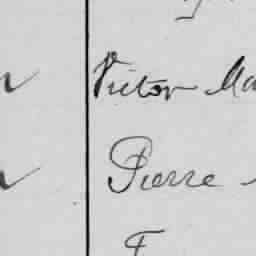 Victor Ma
Pierre
F